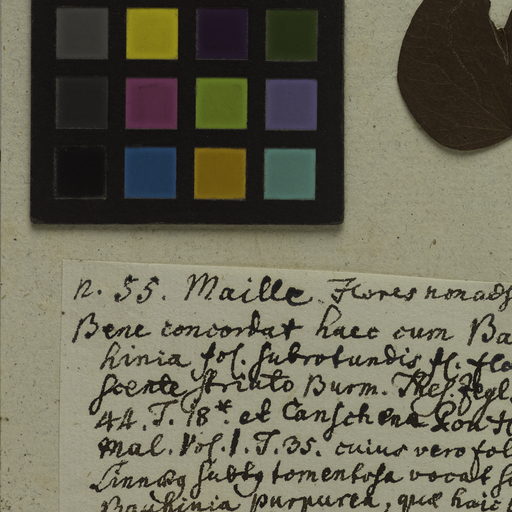 n. 55. Maille. Flores nonads
Bene concordat haec cum Ba
hinia fol. subrotundis, fl. fla
scente striato Burm. Thes. Zeyl.
44. T. 18*. et Canschena Pou H
Mal. Vol. 1. T. 35. cuius vero fol
Linnaeg subtg tomentosa vocat
Bauhinia purpurea, quae haic